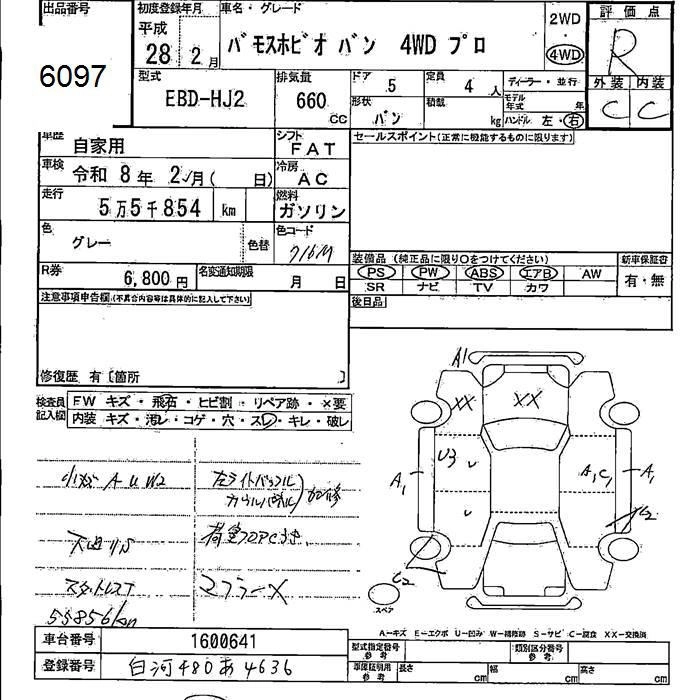 出品番号
6097
初度登録年月
平成
28年 2月
車名・グレード
バモスホビオ バン 4WD プロ
2WD
・
4WD
評価点
R
外装 内装
C C
型式
EBD-HJ2
排気量
660
CC
ドア 5
定員 4 人
ディーラー・並行
形状 バン
積載 kg
モデル年式 年
ハンドル 左・右
車歴 自家用
シフト FAT
セールスポイント(正常に機能するものに限ります)
車検 令和 8年 2月( 日)
冷房 AC
走行 5万5千854 km
燃料 ガソリン
色 グレー
色替
色コード
装備品 (純正品に限り○をつけてください)
新車保証書
PS PW ABS エアB AW
有・無
SR ナビ TV カワ
R券 6,800円
名変通知期限 月 日
後日品
注意事項申告欄(不具合内容等は具体的に記入して下さい)
修復歴 有〔箇所 〕
検査員記入欄
FW キズ・飛石・ヒビ割・リペア跡・×要
内装 キズ・汚レ・コゲ・穴・スレ・キレ・破レ
A1
XX XX
U3
A1 A1C1 A1
C2
C2
スペア
小キズ A U W2
左ライトバッフル
カウルパネル 加修
荷室フロアCさき
スタットレス
マフラーX
55856km
A-キズ E-エクボ U-凹み W-補修跡 S-サビ C-腐食 XX-交換済
車台番号 1600641
登録番号 白河 480 あ 4636
型式指定番号 参考
類別区分番号 参考
車庫証明用 参考
長さ cm 幅 cm 高さ cm